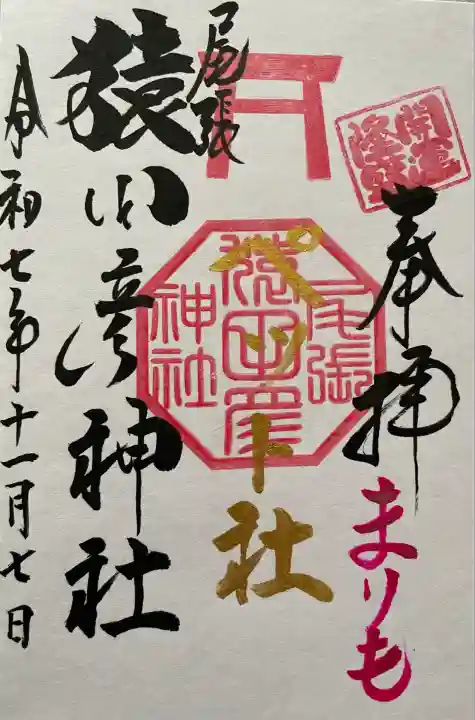 開運
奉拝
まりも
ペット社
尾張
猿田彦
神社
尾張
猿田彦神社
令和七年十一月七日